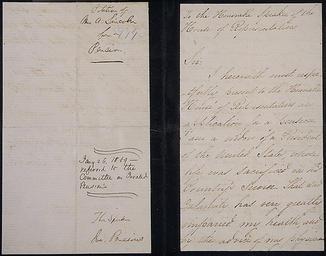 Petition of
Mrs A. Lincoln
for a
Pension
Jany 26. 1869
referred to the
Committee on Invalid
Pensions
The Speaker
Inv. Pensions
To the Honorable Speaker of the
House of Representatives
Sir:
I herewith most respe-
ctfully present to the Honorable
House of Representatives an
application for a pension
I am a widow of a President
of the United States whose
life was sacrificed in his
Country's Service. That sad
calamity has very greatly
impaired my health and
by the advice of my physician